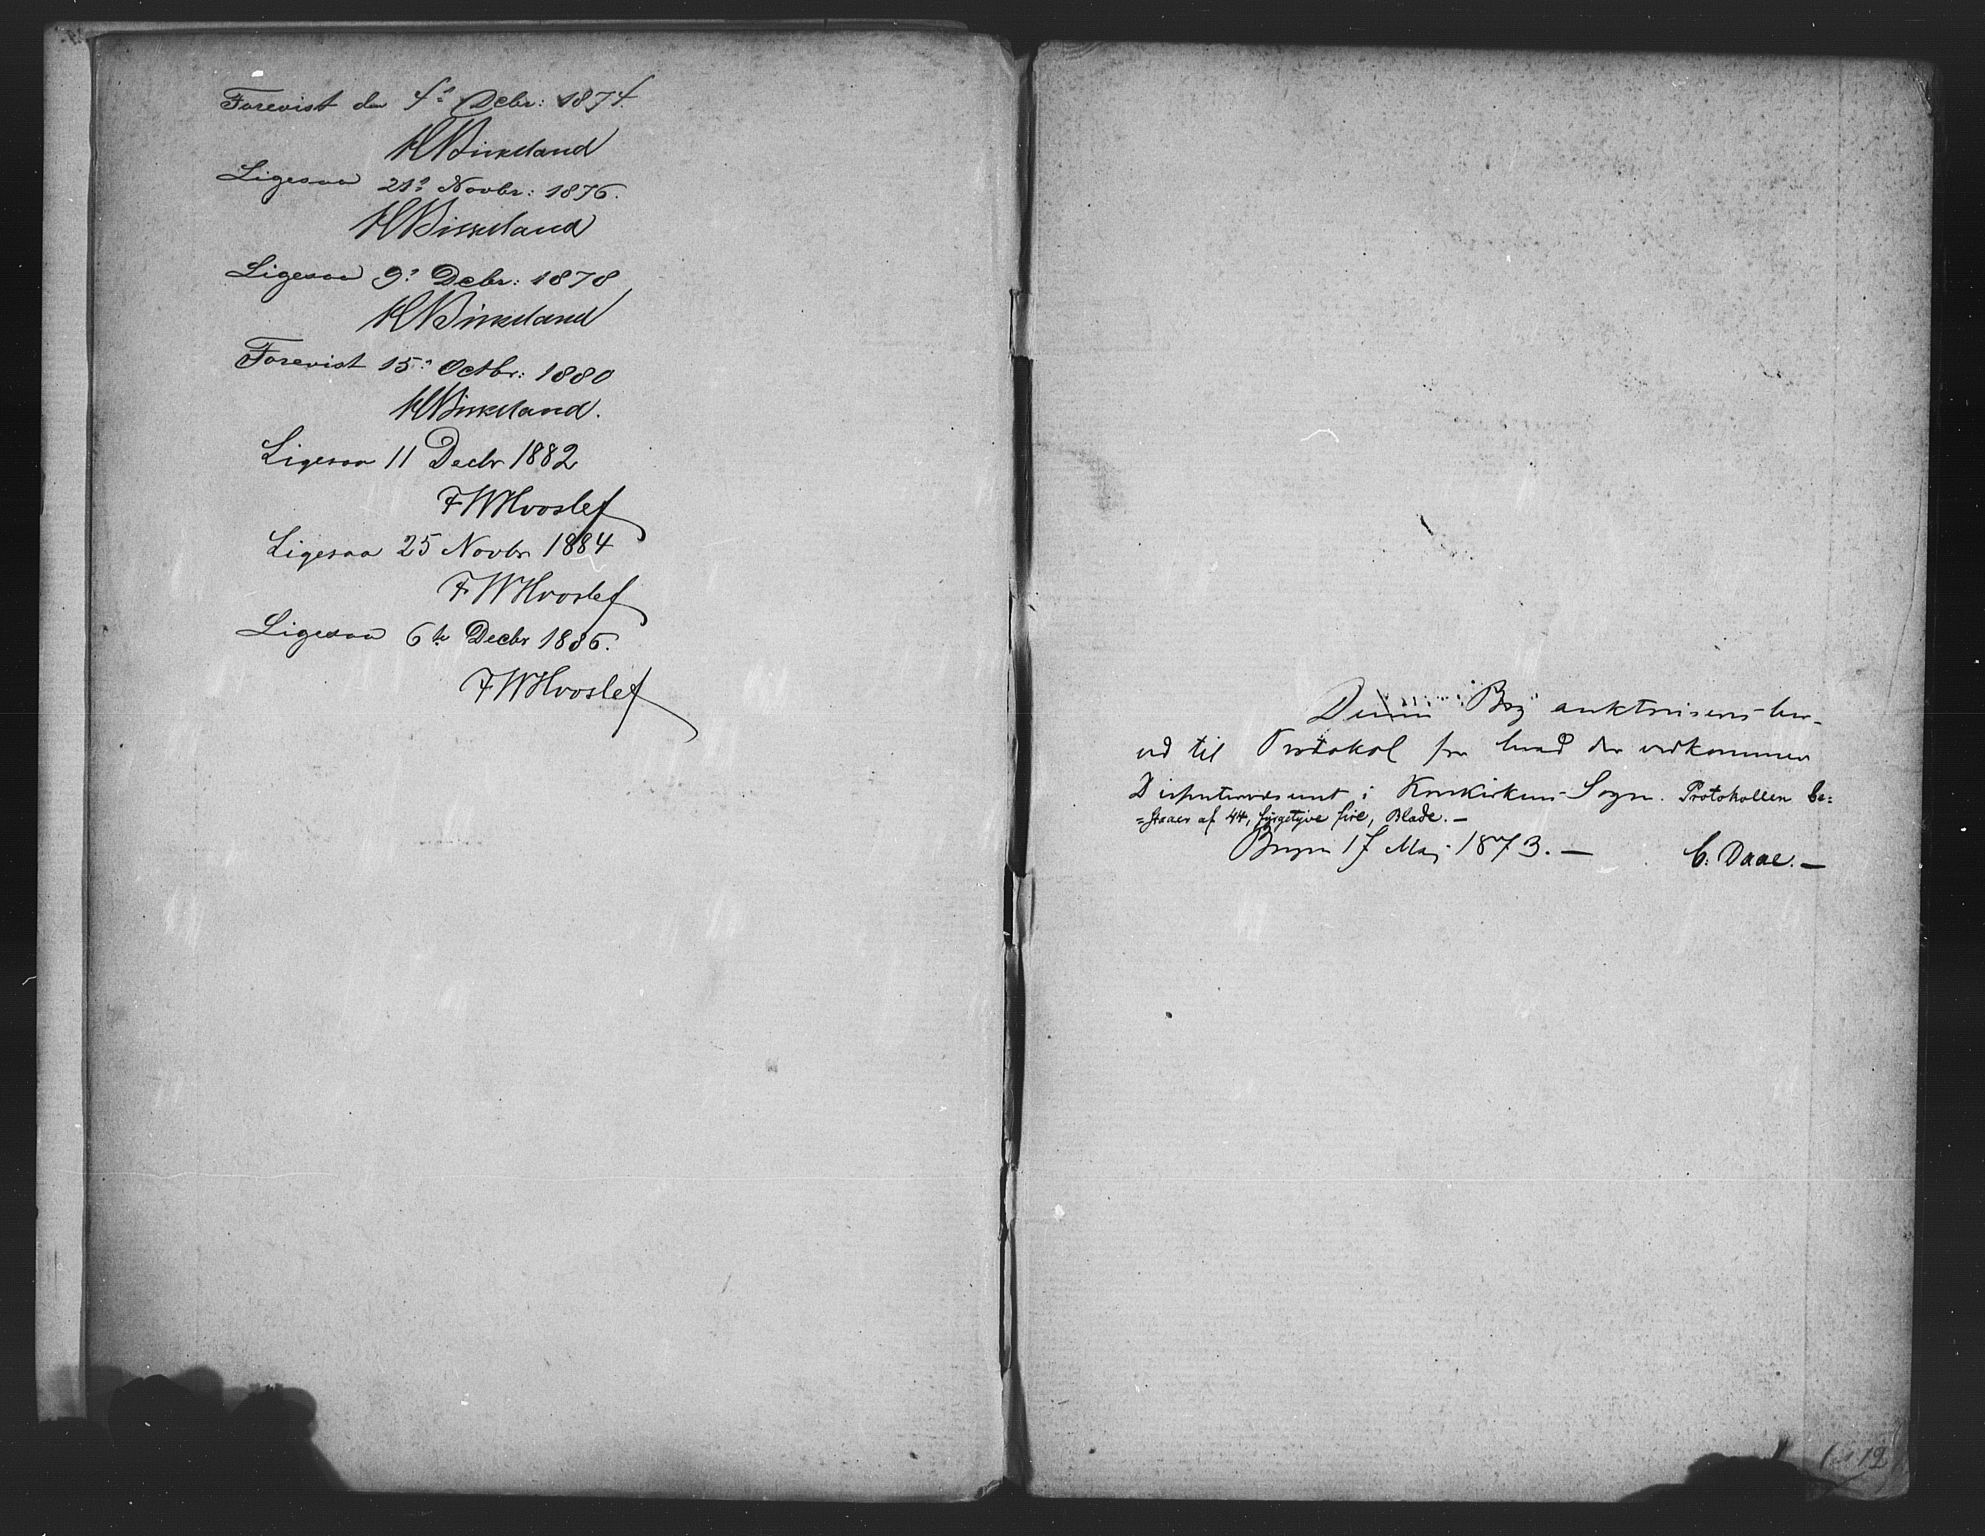 Forevist den 4de Debr: 1874.
HNBirkeland
Ligesaa 21de Novbr: 1876.
HNBirkeland
Ligesaa 9de Debr: 1878
HNBirkeland
Forevist 15de Octbr: 1880
HNBirkeland.
Ligesaa 11 Decbr 1882
FWHvoslef
Ligesaa 25 Novbr 1884
FWHvoslef
Ligesaa 6te Decbr 1886.
FWHvoslef
Denne Bog auktoriseres her-
ved til Protokol for hvad der vedkommer
i Korskirkens Sogn. Protokollen be=
=staaer af 44, fyrgetyve fire, Blade. —
Bergen 17 Mai 1873. — C. Daae. —